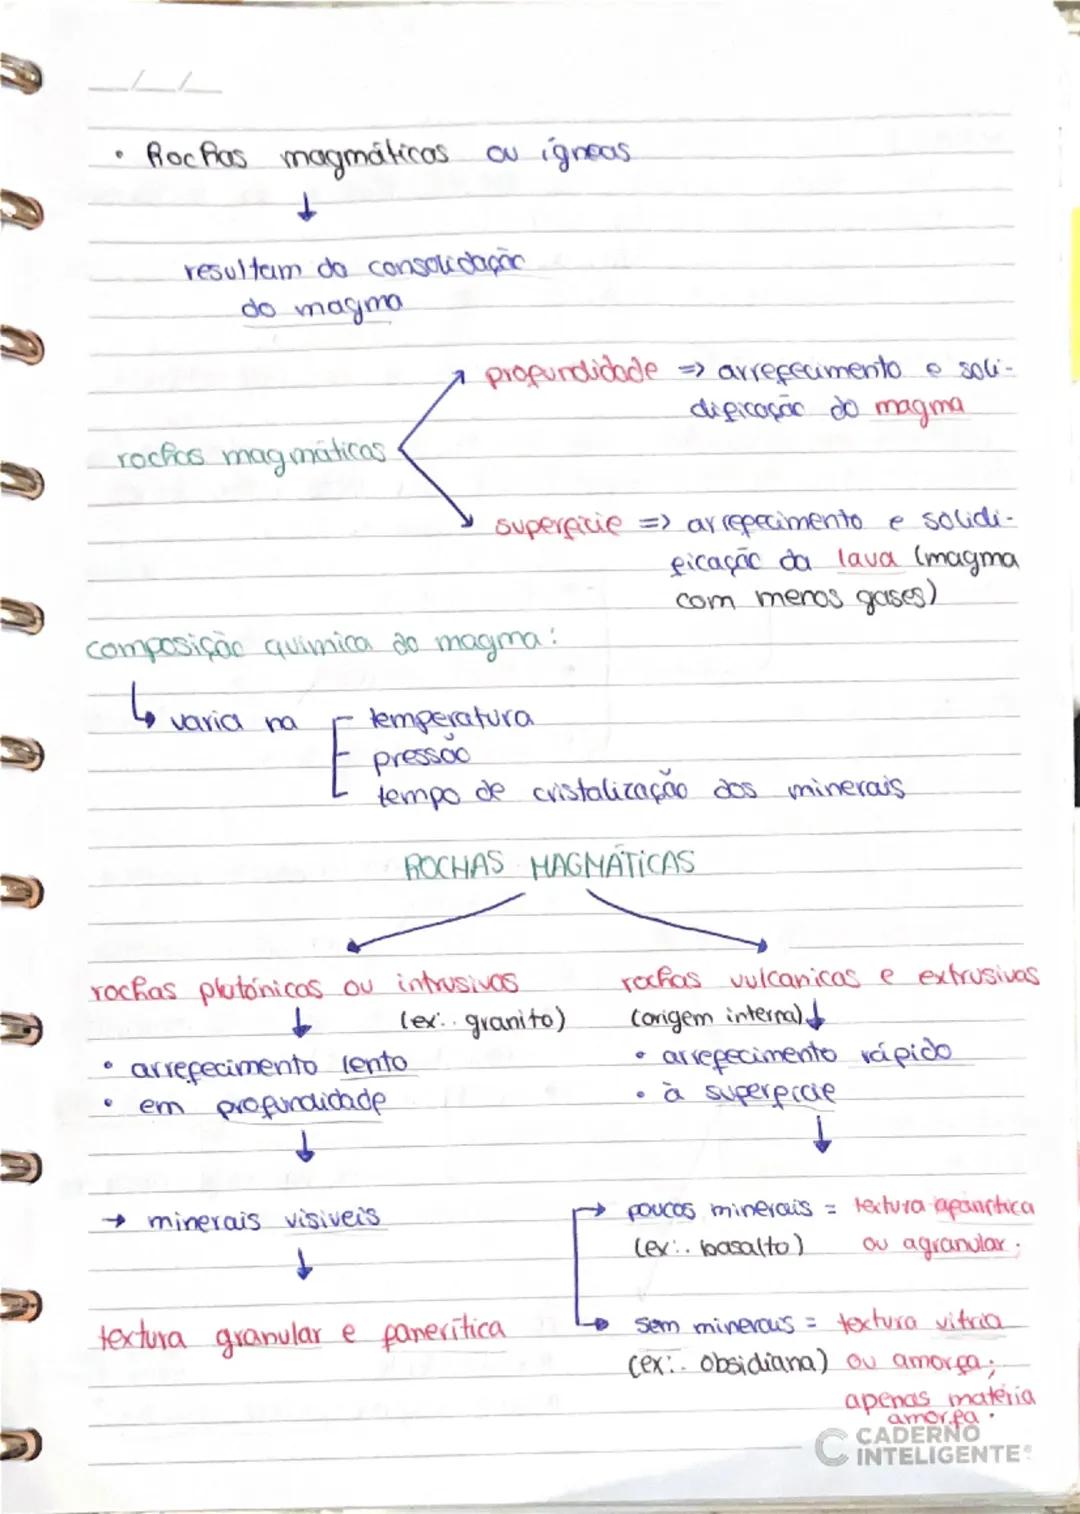 • Rochas magmáticas ou ígneas
↓
resultam da consolidação
do magma
profundidade => arrefecimento e soli-
dificação do magma
rochas magmáticas
superfície => arrefecimento e solidi-
ficação da lava (magma
com menos gases)
composição química do magma:
↳ varia na
temperatura
pressão
tempo de cristalização dos minerais
ROCHAS MAGMÁTICAS
rochas plutónicas ou intrusivas
(ex:. granito)
• arrefecimento lento
• em profundidade
→ minerais visiveis
↓
textura granular e fanerítica
rochas vulcanicas e extrusivas
(origem interna) ↓
• arrefecimento rápido
• à superfície
↓
poucos minerais = textura afanítica
(ex:. basalto) ou agranular.
sem minerais = textura vitria
(ex:. obsidiana) ou amorfa;
apenas matéria
amorfa.
CADERNO
INTELIGENTE®